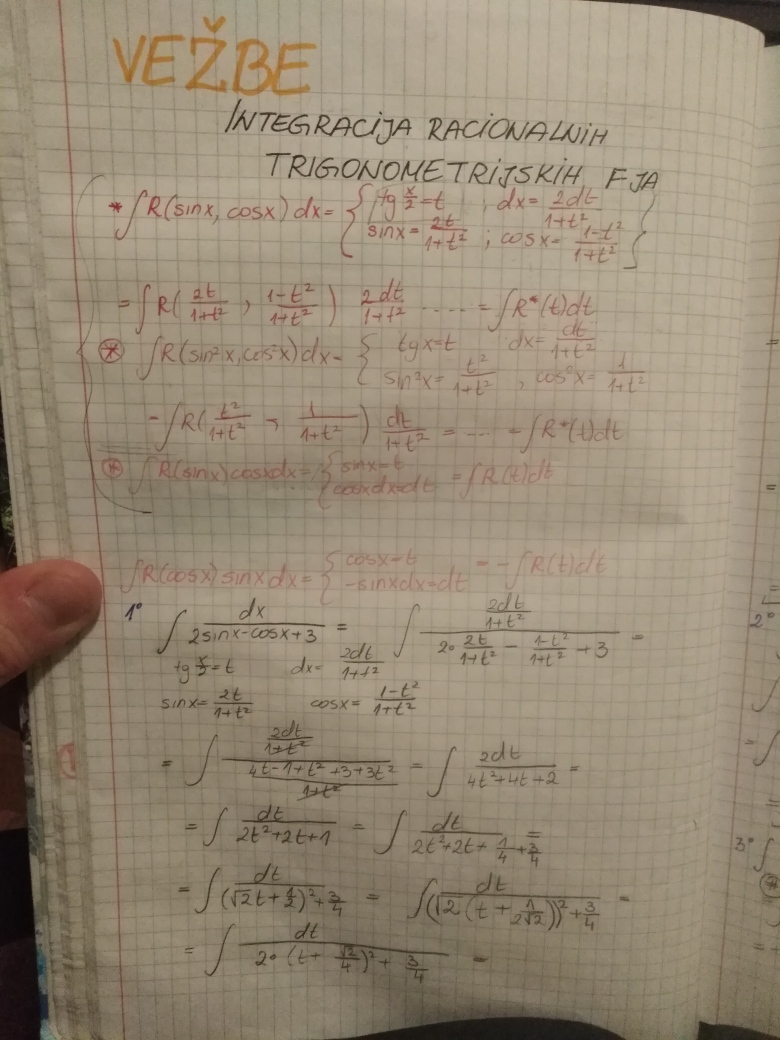 VEŽBE
INTEGRACIJA RACIONALNIH
TRIGONOMETRIJSKIH FJA
* ∫R(sinx, cosx) dx = { tg x/2 = t , dx = 2dt/(1+t²)
sinx = 2t/(1+t²) ; cosx = (1-t²)/(1+t²) }
= ∫R( 2t/(1+t²) , (1-t²)/(1+t²) ) 2dt/(1+t²) .... = ∫R*(t)dt
⊛ ∫R(sin²x, cos²x)dx = { tgx = t dx = dt/(1+t²)
sin²x = t²/(1+t²) , cos²x = 1/(1+t²)
= ∫R( t²/(1+t²) , 1/(1+t²) ) dt/(1+t²) = ... = ∫R*(t)dt
⊛ ∫R(sinx)cosxdx = { sinx = t
cosxdx = dt = ∫R(t)dt
∫R(cosx) sinx dx = { cosx = t
-sinxdx = dt = -∫R(t)dt
1° ∫ dx/(2sinx-cosx+3) = ∫ (2dt/(1+t²))/(2· 2t/(1+t²) - (1-t²)/(1+t²) + 3) =
tg x/2 = t dx = 2dt/(1+t²)
sinx = 2t/(1+t²) cosx = (1-t²)/(1+t²)
= ∫ (2dt/(1+t²))/((4t-1+t²+3+3t²)/(1+t²)) = ∫ 2dt/(4t²+4t+2) =
= ∫ dt/(2t²+2t+1) = ∫ dt/(2t²+2t+ 1/4 + 3/4) =
= ∫ dt/((√2t+1/2)²+3/4) = ∫ dt/((√2(t+1/(2√2)))²+3/4) =
= ∫ dt/(2·(t+√2/4)²+3/4) =
2°
3° ∫